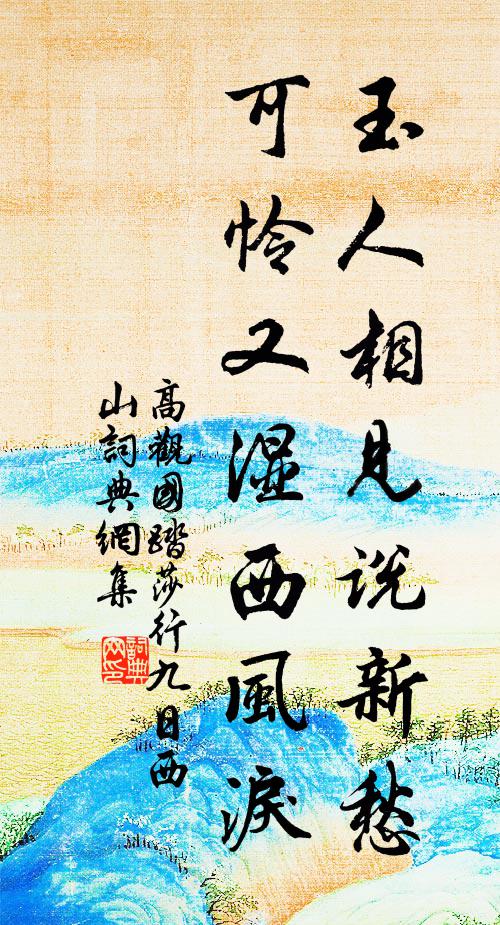 玉人相見説新愁
可怜又濕西風淚
高觀國踏莎行九日西
山詞典網集
詞典